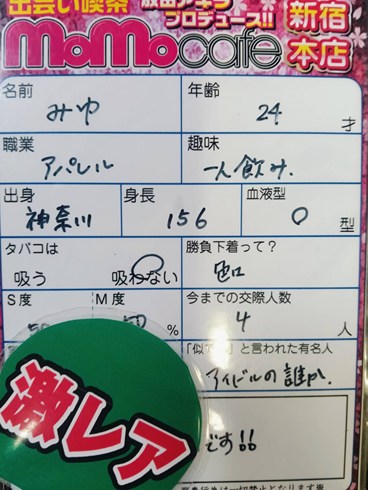 出会い喫茶
プロデュース!!
MoMocafe
新宿
本店
名前
年齢
みゆ
24
才
職業
趣味
アパレル
一人飲み.
出身
身長
血液型
神奈川
156
O
型
タバコは
勝負下着って?
吸う
吸わない
S度
M度
今までの交際人数
%
4
人
と言われた有名人
アイドルの誰か.
激レア
です!!